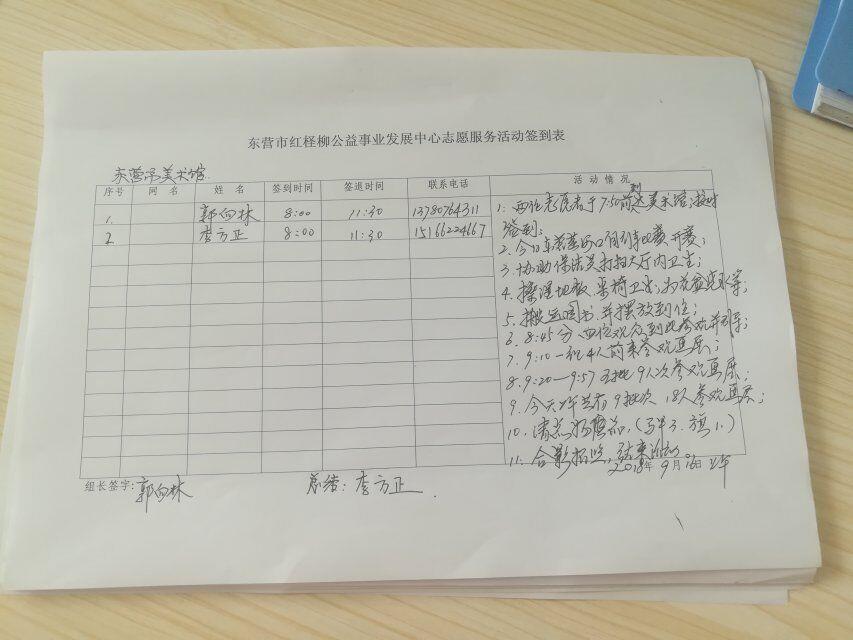 东营市红柽柳公益事业发展中心志愿服务活动签到表
东营市美术馆
序号 网名 姓名 签到时间 签退时间 联系电话 活动情况
1. 郭向林 8:00 11:30 13780764311
2. 李方正 8:00 11:30 15166224667
1. 两位志愿者于7:50前到达美术馆;按时
签到;
2. 今
3. 协助保洁员打扫大厅内卫生;
4. 擦湿地板、桌椅卫生,为花盆浇水等;
5. 搬运图书,并摆放到位;
6. 8:45分,四位观众到此参观并引导;
7. 9:10一批4人前来参观画展;
8. 9:20—9:57 批9人次参观画展;
9. 今天上午共有9批次,18人参观画展;
10. 清点物品,(马甲3.旗1.)
11. 合影拍照,结束活动
2018年9月26日上午
组长签字:郭向林 总结:李方正.